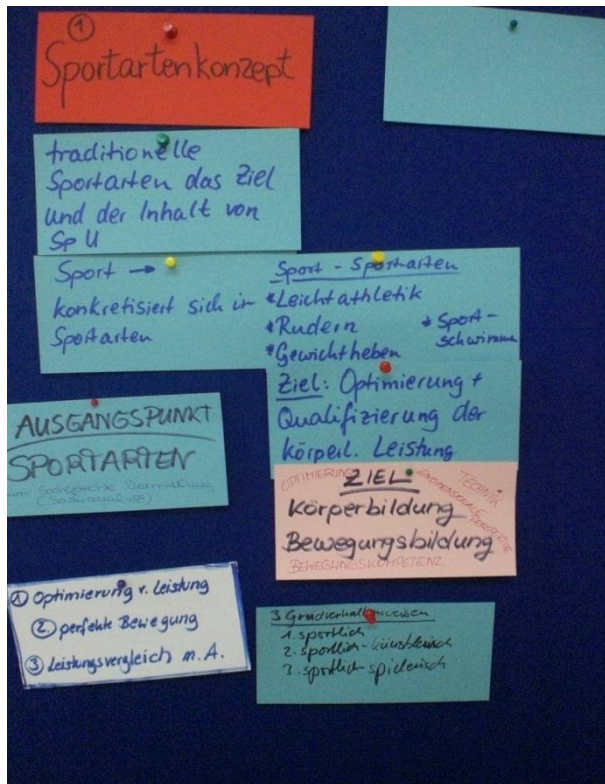 ①
Sportartenkonzept
traditionelle
Sportarten das Ziel
und der Inhalt von
Sp U
Sport →
konkretisiert sich in
Sportarten
Sport - Sportarten
*Leichtathletik
*Rudern
*Gewichtheben
* Sport-
schwimme
Ziel: Optimierung +
Qualifizierung der
körperl. Leistung
AUSGANGSPUNKT
SPORTARTEN
sachgerechte Vermittlung
(Sachanalyse)
OPTIMIERUNG
ZIEL:
TECHNIK
Körperbildung
Bewegungsbildung
BEWEGUNGSKOMPETENZ
① Optimierung v. Leistung
② perfekte Bewegung
③ Leistungsvergleich m. A.
3 Grundverhaltensweisen
1. sportlich
2. sportlich-künstlerisch
3. sportlich-spielerisch